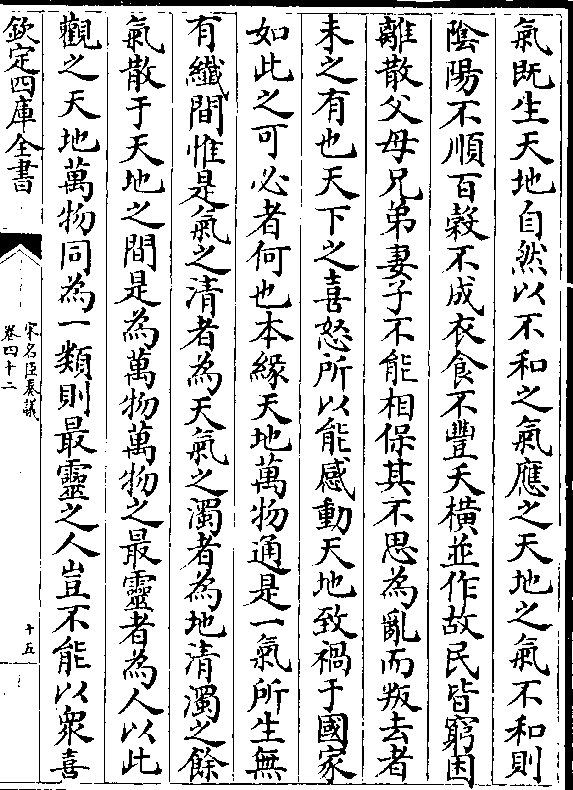 氣既生天地自然以不和之氣應之天地之氣不和則
陰陽不順百榖不成衣食不豐夭橫並作故民皆窮困
離散父母兄弟妻子不能相保其不思為亂而叛去者
未之有也天下之喜怒所以能感動天地致禍于國家
如此之可必者何也本緣天地萬物通是一氣所生無
有纖間惟是氣之清者為天氣之濁者為地清濁之餘
氣散于天地之間是為萬物萬物之最靈者為人以此
觀之天地萬物同為一類則最靈之人豈不能以衆喜
欽定四庫全書
宋名臣奏議
卷四十二
十五